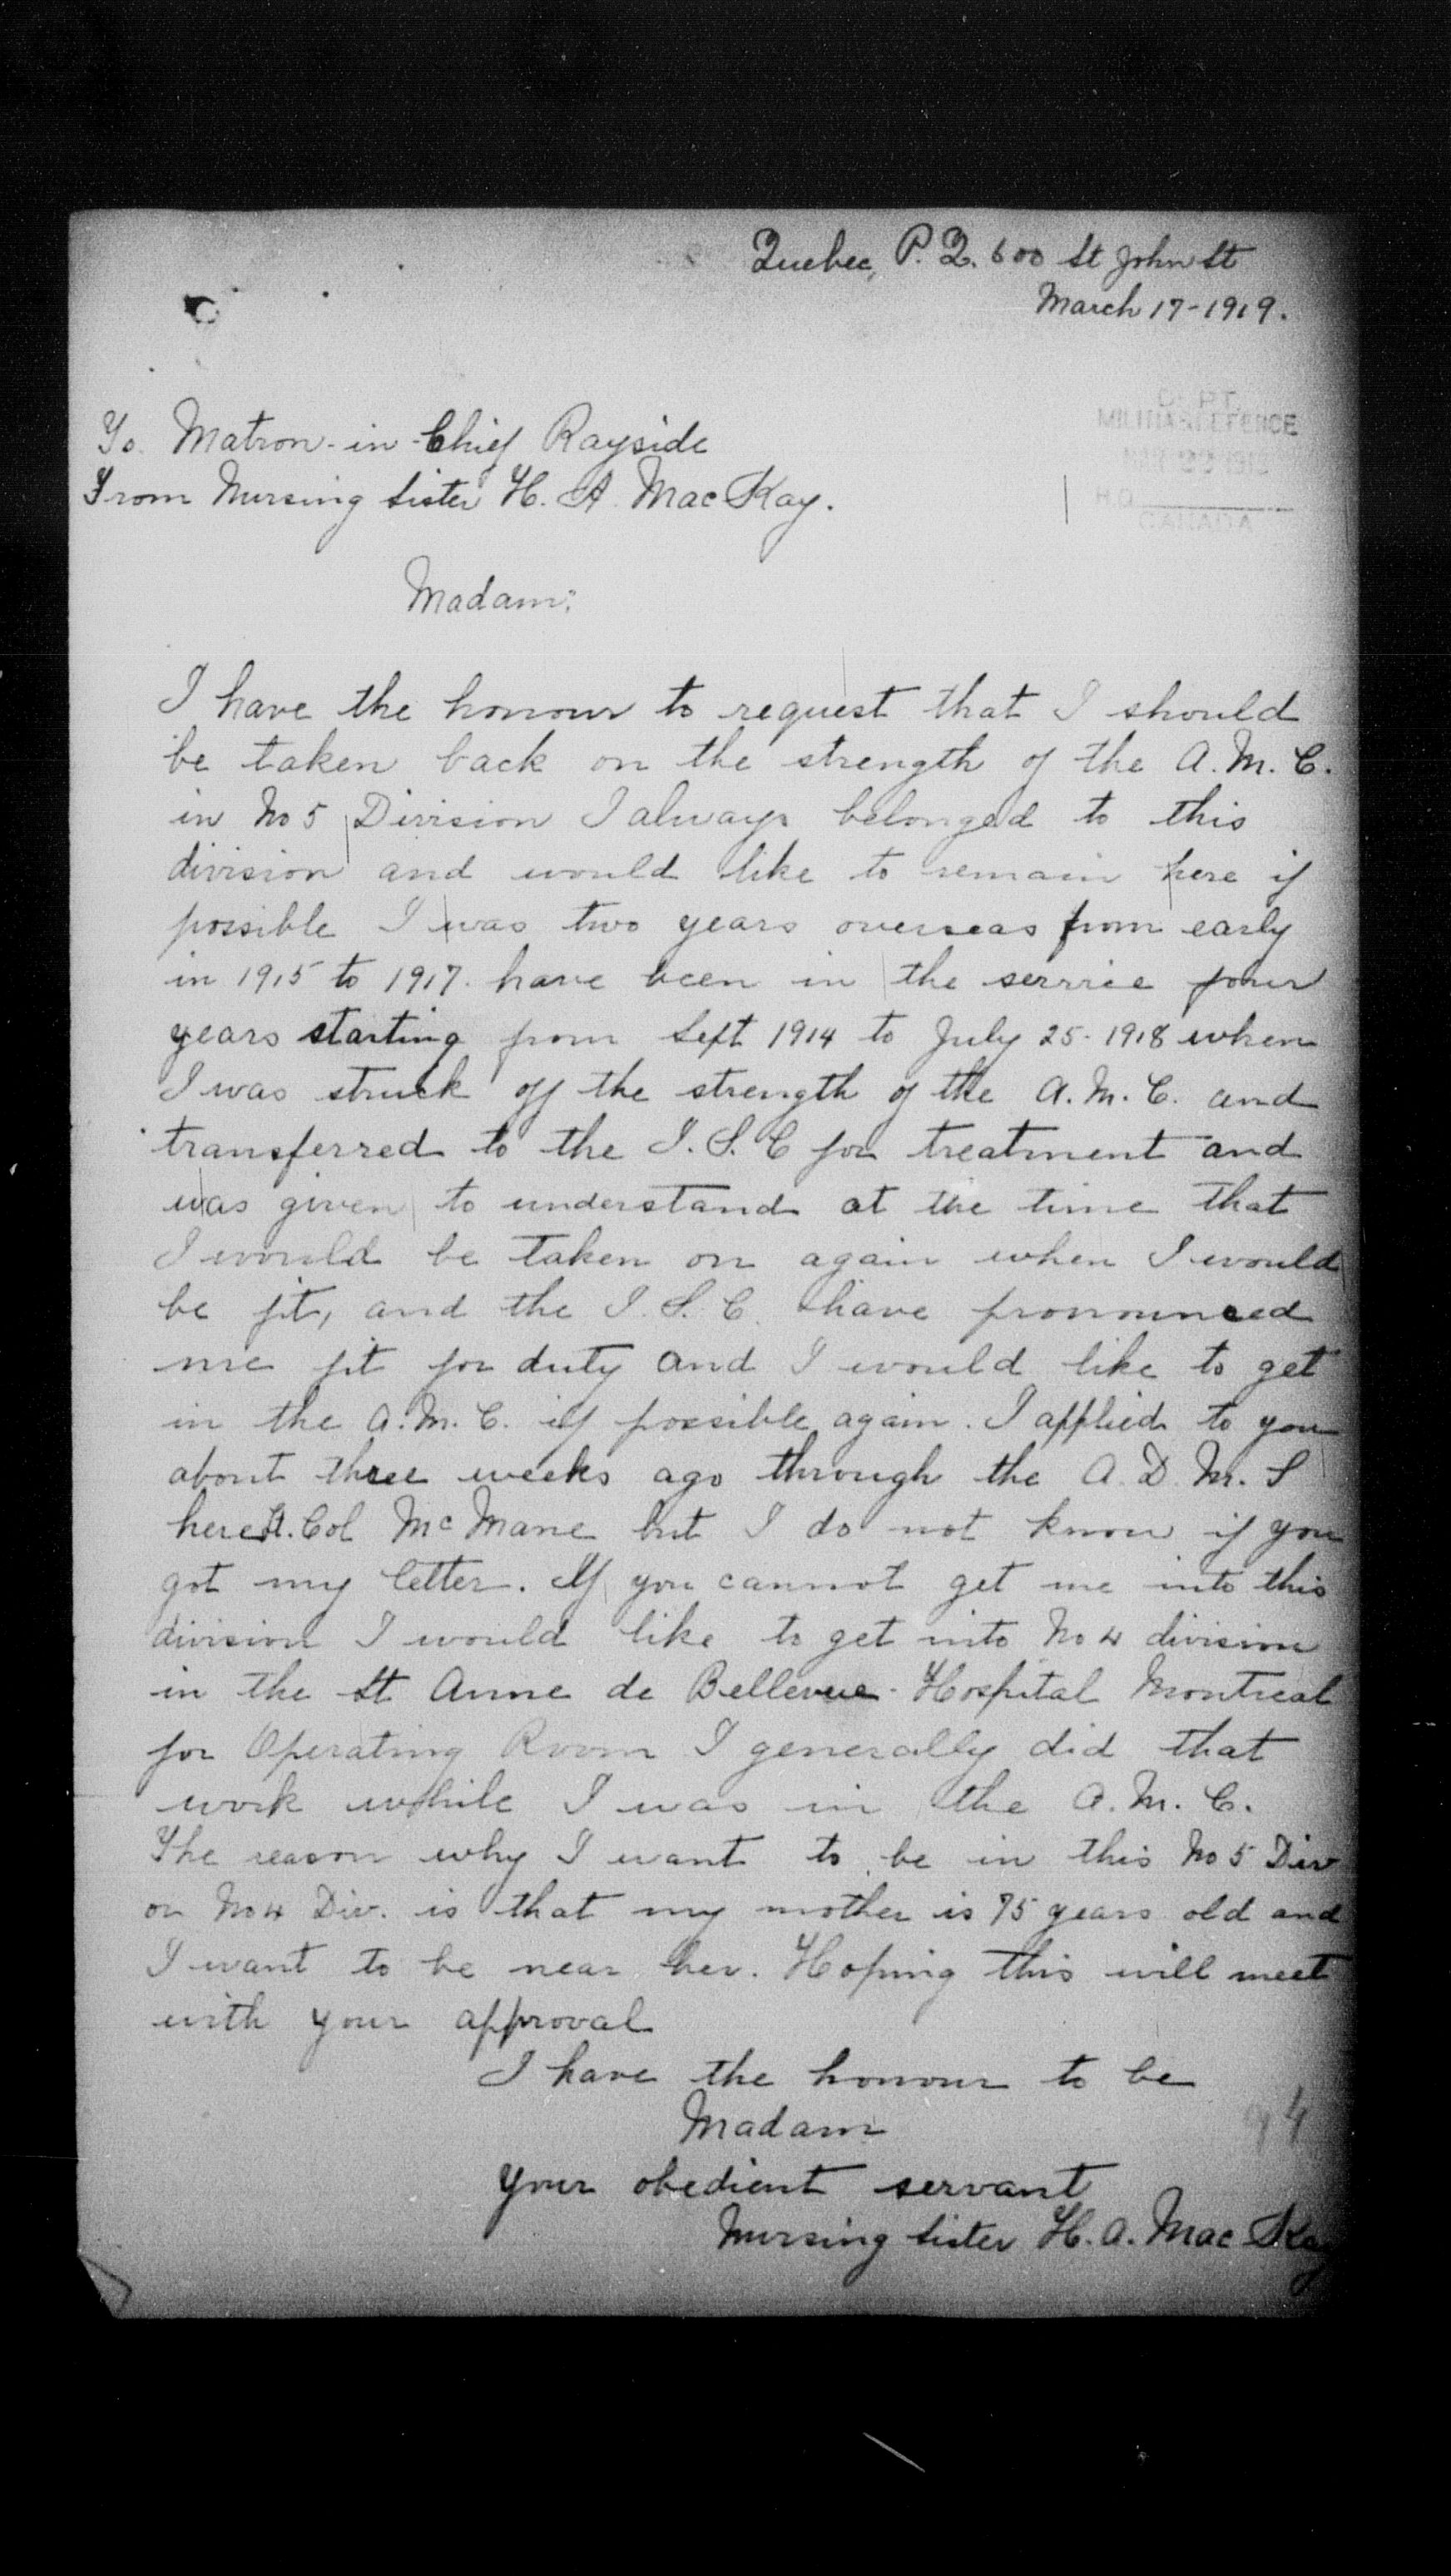 Quebec, P. Q. 600 St John St
March 17-1919.
DEPT.
MILITIA & DEFENCE
H.Q.
CANADA
To. Matron-in-Chief Rayside
From Nursing Sister H. A. MacKay.
Madam:
I have the honour to request that I should
be taken back on the strength of the A.M.C.
in No 5 Division I always belonged to this
division and would like to remain here if
possible I was two years overseas from early
in 1915 to 1917. have been in the service four
years starting from Sept 1914 to July 25-1918 when
I was struck off the strength of the A.M.C. and
transferred to the I.S.C for treatment and
was given to understand at the time that
I would be taken on again when I would
be fit, and the I.S.C. have pronounced
me fit for duty and I would like to get
in the A.M.C. if possible again. I applied to you
about three weeks ago through the A.D.M.S
here Lt. Col McMane but I do not know if you
got my letter. If you cannot get me into this
division I would like to get into No 4 division
in the St Anne de Bellevue-Hospital Montreal
for Operating Room I generally did that
work while I was in the A.M.C.
The reason why I want to be in this No 5 Div
or No 4 Div. is that my mother is 75 years old and
I want to be near her. Hoping this will meet
with your approval
I have the honour to be
Madam
94
Your obedient servant
Nursing Sister H.A. MacKay